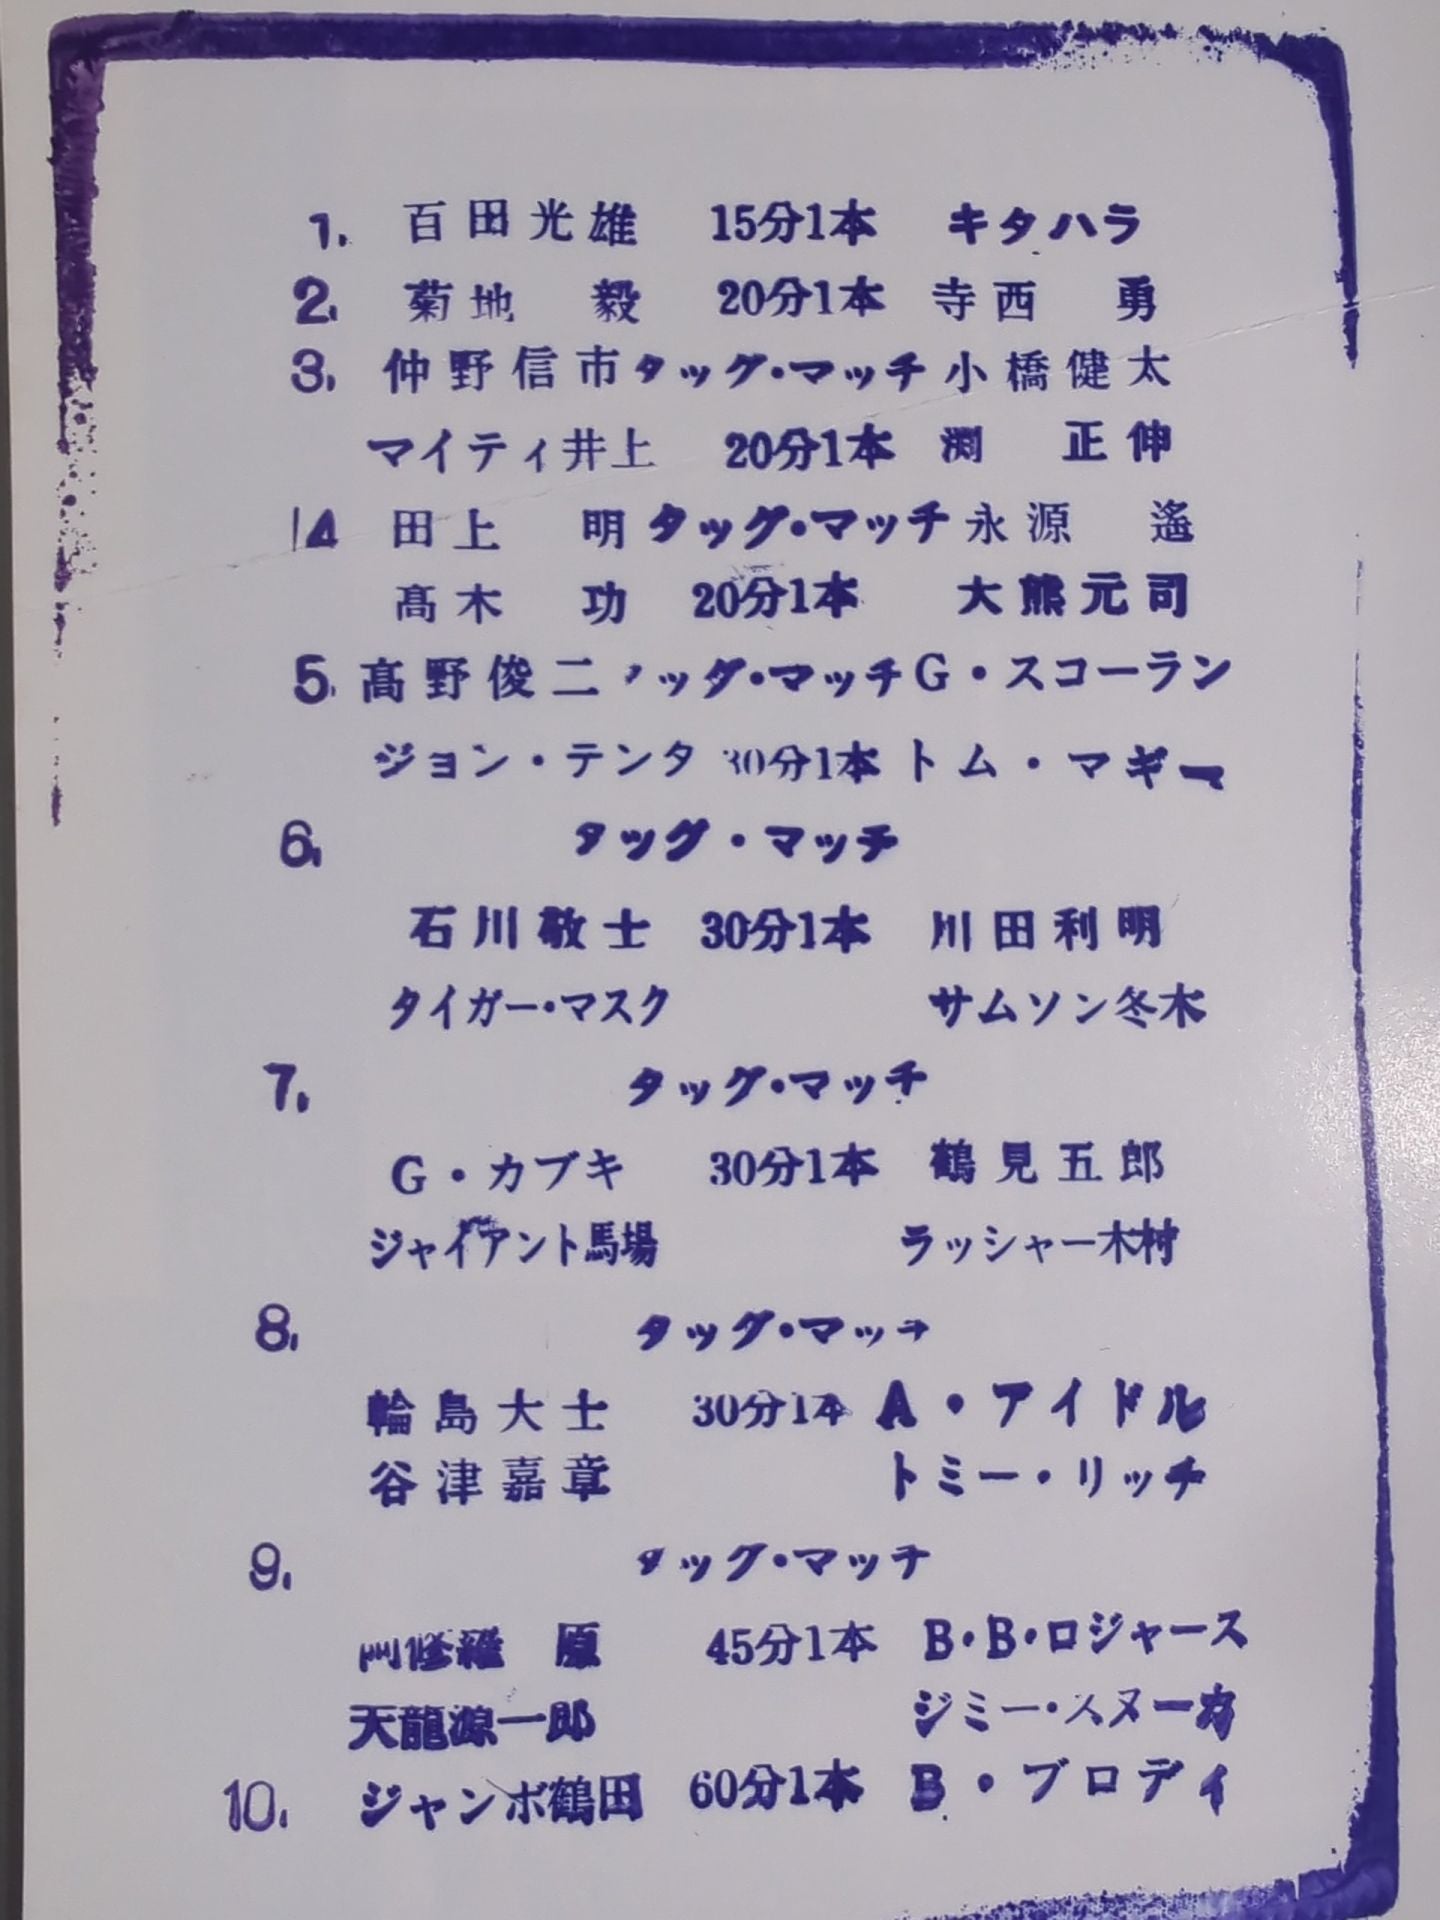 1. 百田光雄 15分1本 キタハラ
2. 菊地 毅 20分1本 寺西 勇
3. 仲野信市 タッグ・マッチ 小橋健太
マイティ井上 20分1本 渕 正伸
4 田上 明 タッグ・マッチ 永源 遙
髙木 功 20分1本 大熊元司
5. 髙野俊二 タッグ・マッチ G・スコーラン
ジョン・テンタ 30分1本 トム・マギー
6. タッグ・マッチ
石川敬士 30分1本 川田利明
タイガー・マスク サムソン冬木
7. タッグ・マッチ
G・カブキ 30分1本 鶴見五郎
ジャイアント馬場 ラッシャー木村
8. タッグ・マッチ
輪島大士 30分1本 A・アイドル
谷津嘉章 トミー・リッチ
9. タッグ・マッチ
阿修羅 原 45分1本 B・B・ロジャース
天龍源一郎 ジミー・スヌーカ
10. ジャンボ鶴田 60分1本 B・ブロディ